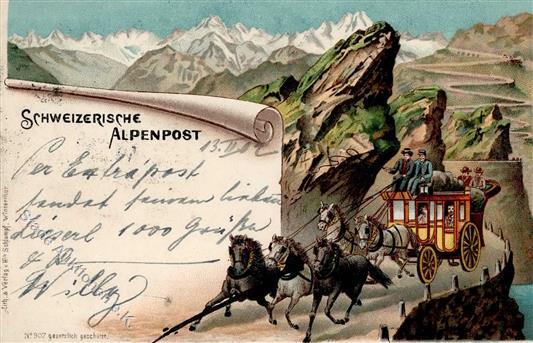 SCHWEIZERISCHE
ALPENPOST
13.
Per Extrapost
sendet seinem lieben
1000 Grüße
Willy
Lith. & Verlag v. Schlumpf, Winterthur
No 907 gesetzlich geschützt.